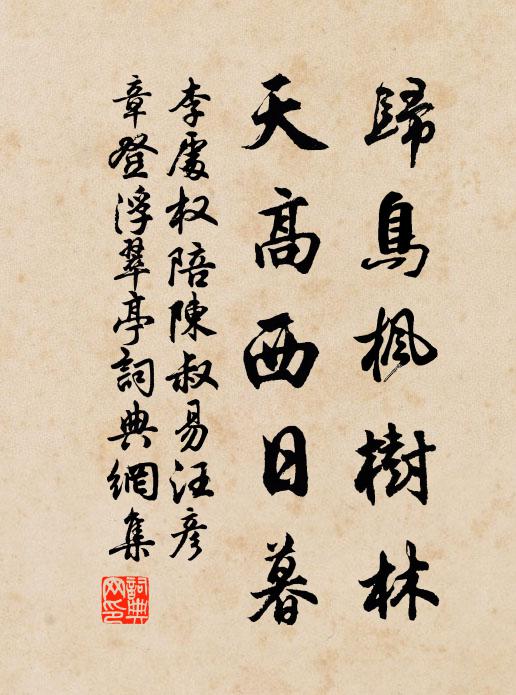 歸鳥楓樹林
天高西日暮
李處权陪陳叔易汪彦
章登浮翠亭詞典網集
詞典网印